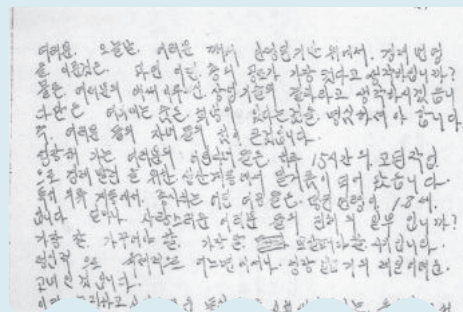 여러분. 오늘날. 여러분 께서 안정된 기반 위에서. 경제 번영
을 이룬것은. 과연 어떤 층의 공로가 가장 컸다고 생각하십니까?
물론 여러분의 애써 이루신 상업기술의 결과라고 생각하시겠습니
다만은 여기에는 숨은 희생이 있다는것을 명심하셔야 합니다
즉, 여러분 들의 자녀들의 힘이 큰것입니다.
성장해 가는 여러분의 어린 자녀들은 하루 15시간의 고된 작업
으로 경제발전을 위한 생산계통에서 밑거름이 되어 왔습니다.
특히 의류 계통에서. 종사하는 어린 여공들은. 평균 연령이 18세.
입니다 얼마나 사랑스러운 여러분 들의 전체의 일부 입니까?
가장 잘. 가꾸어야 할. 가장 잘 보살펴야 할 시기입니다.
정신적 으로 육체적으로 어느면에서나. 성장 할 시기의 제일 어려운.
고비인 것입니다.